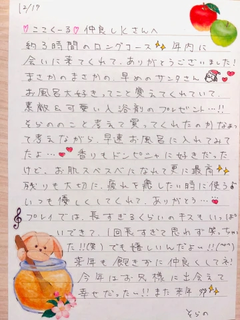 12/17
ここくーる 仲良しくさんへ
約3時間のロングコース 年内に
会いに来てくれて、ありがとうございました!
まさかのまさかの早めのサンタさん
お風呂大好きってこと覚えてくれていて
素敵&可愛い入浴剤のプレゼント…!!
そらののこと考えて買ってくれたのかなぁって
考えながら、早速お風呂に入れてみて
たよ… 香りもドンピシャに好きだった
けど、お肌スベスベになって更に最高
残りも大切に、疲れを癒したい時に使うよ
いつも優しくしてくれて、ありがとう…
プレイでは、長すぎるくらいのキスもいっぱい
できて、1回長すぎて思わず笑っちゃっ
た!!(笑)でも嬉しいんだよー!!(^^)
来年も飽きずに仲良くしてネ!
今年はお兄様に出会えて
幸せだったー!!また来年
そらの